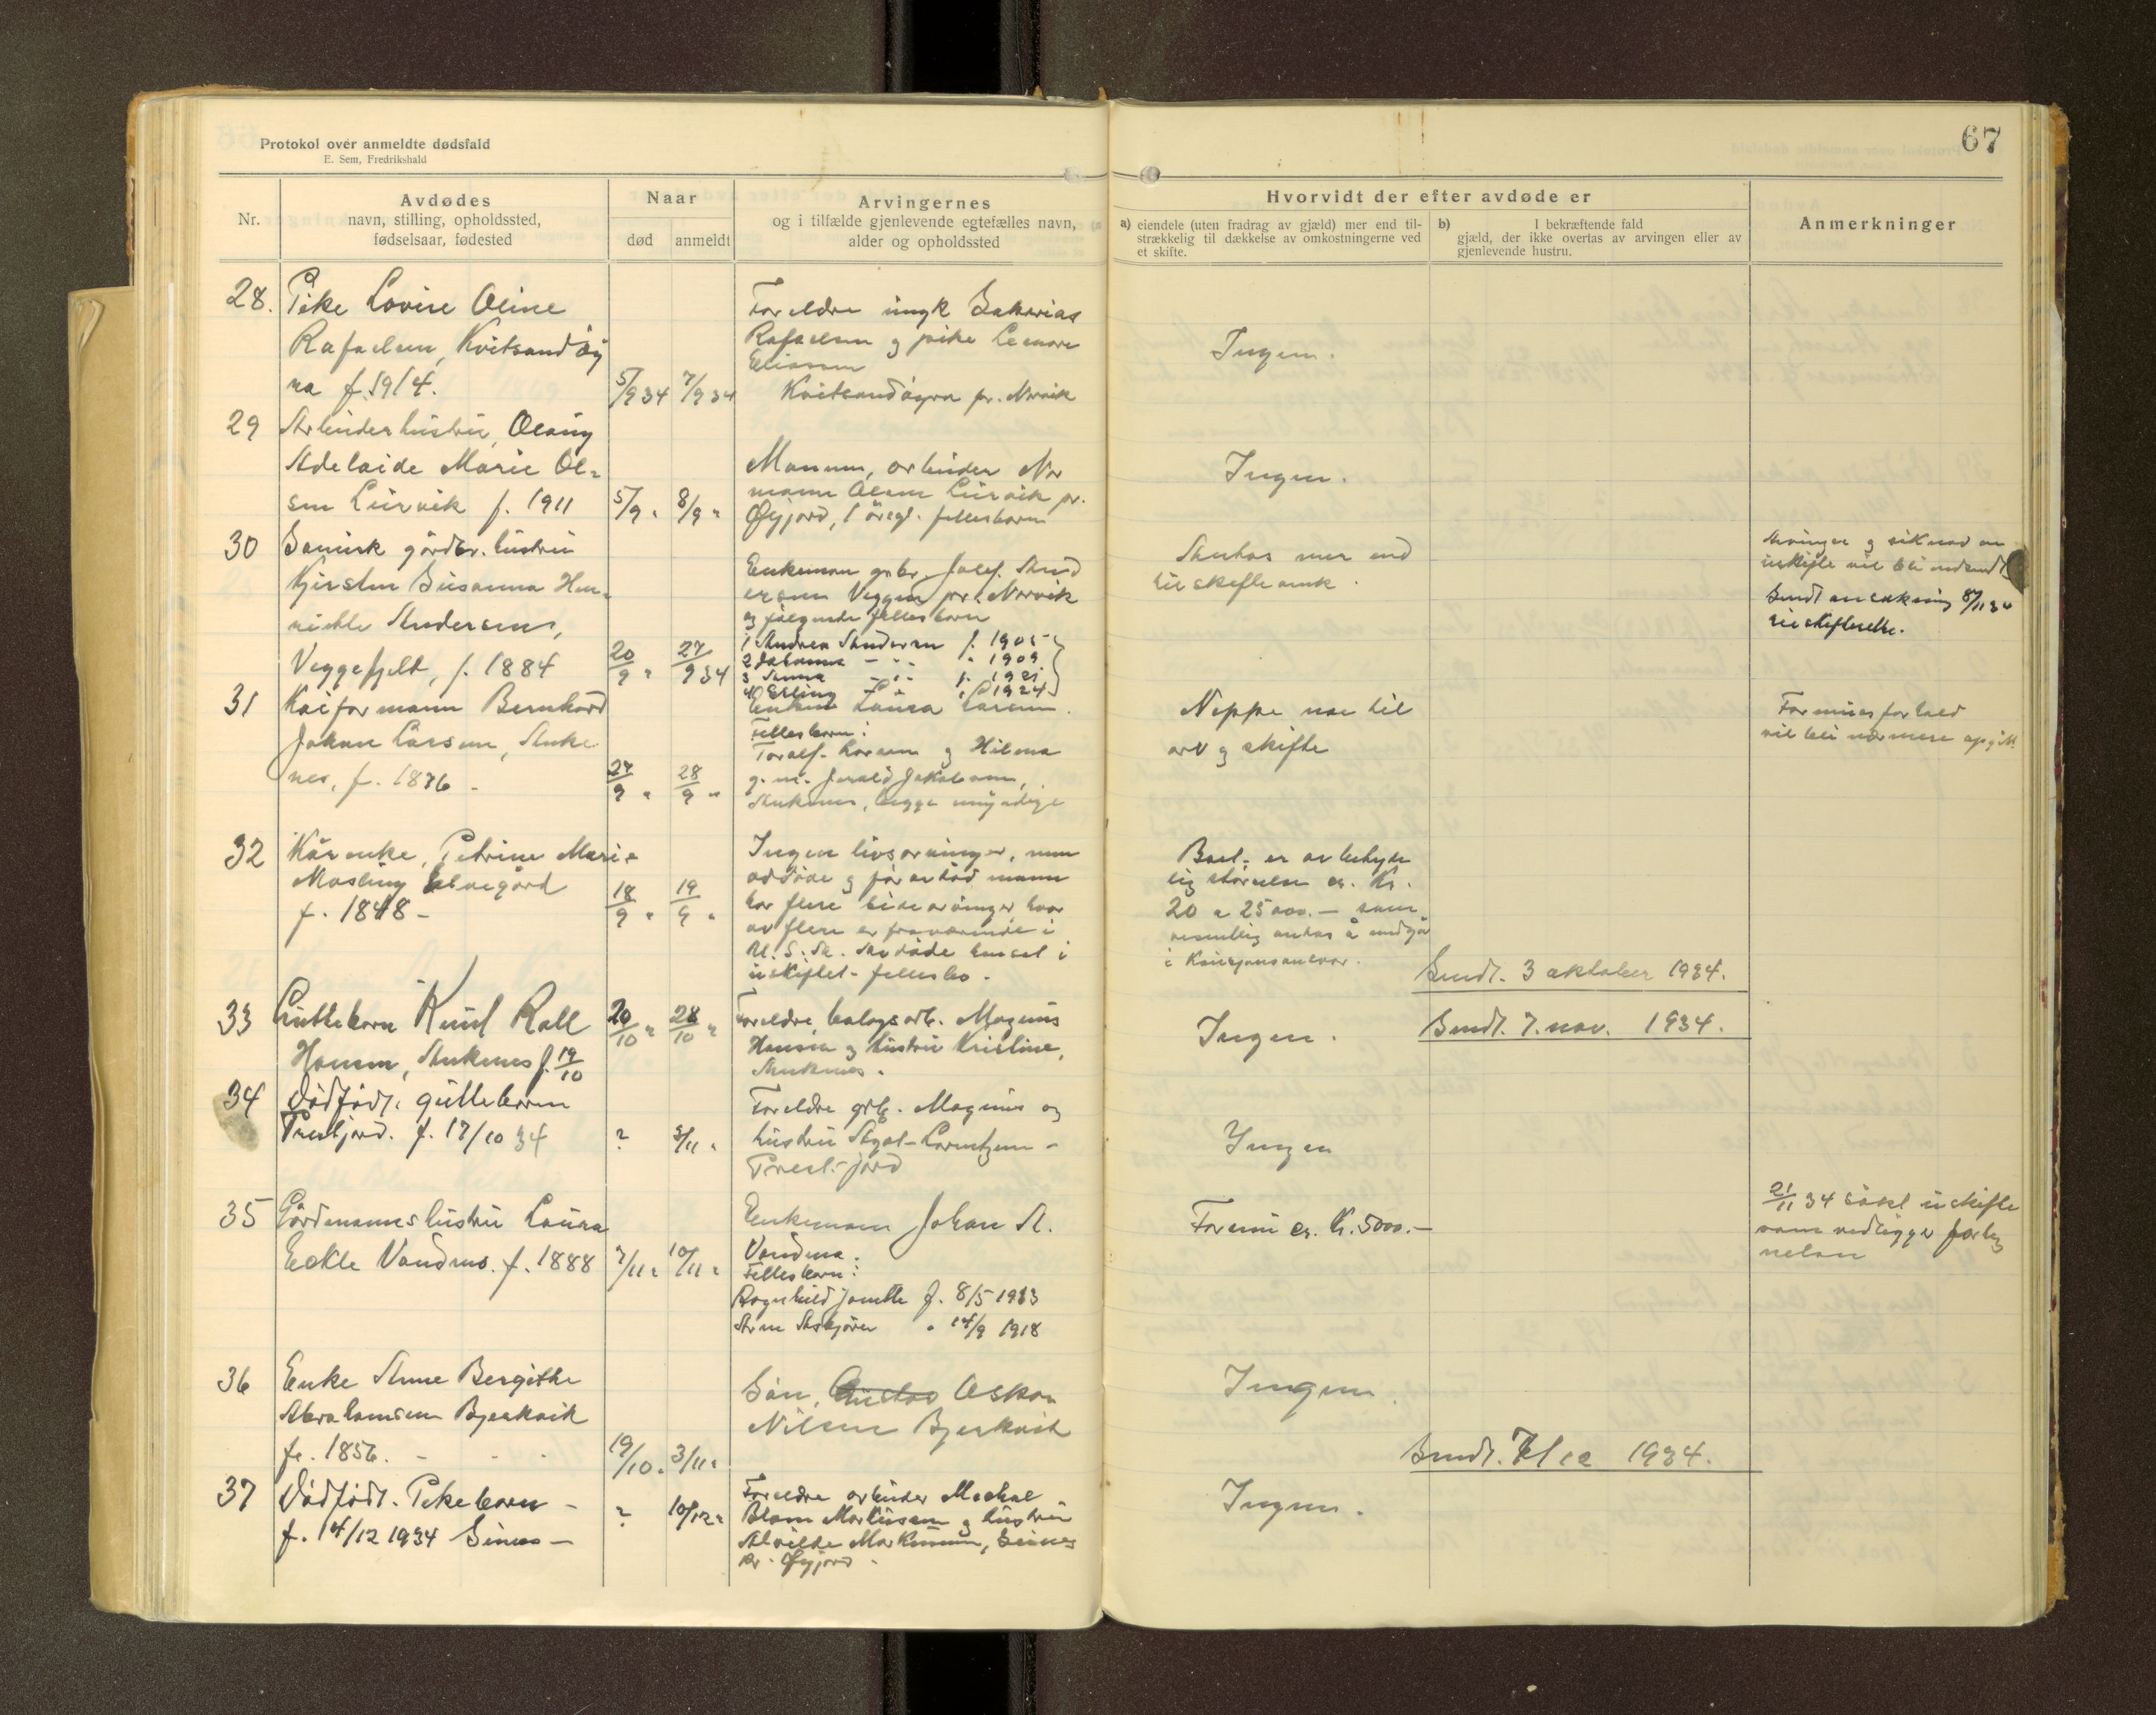 67
Protokol over anmeldte dødsfald
E. Sem, Fredrikshald
Nr.
Avdødes
navn, stilling, opholdssted,
fødselsaar, fødested
Naar
død
anmeldt
Arvingernes
og i tilfælde gjenlevende egtefælles navn,
alder og opholdssted
Hvorvidt der efter avdøde er
a) eiendele (uten fradrag av gjæld) mer end til-
strækkelig til dækkelse av omkostningerne ved
et skifte.
b) I bekræftende fald
gjæld, der ikke overtas av arvingen eller av
gjenlevende hustru.
Anmerkninger
28. Pike Lovise Oline
Rafaelsen, Kvitsandøy
ra f. 1914.
5/9 34 7/9 34
Foreldre ungk Sakarias
Rafaelsen og pike Leonore
Eliassen
Kvitsandøyra pr. Narvik
Ingen.
29 Arbeiderhustru, Olaug
Adelaide Marie Ol=
sen Lurvik f. 1911
5/9 " 8/9 "
Mannen, arbeider Nor
mann Olsen Lurvik pr.
Øyjord, 1 fellesbarn
Ingen.
30 Samisk gårdbr. hustru
Kjersten Susanna Hen=
rikke Andersens,
Veggefjell, f. 1884
20/9 " 27/9 34
Enkeman gårdbr. Josef And
ersen Veggen pr. Narvik
og følgende fellesbarn
1 Andrea Andersen f. 1905
2 Johanna - " - " 1909
3 Anna - " - f. 1921
4 Erling - " - " 1924
Anhas mer end
til skifte omk.
Arvinger og søknad om
uskifte vil bli indsendt
Sendt ansøkning 8/11 34
til skifterette.
31 Kaiformann Bernhard
Johan Larsen, Anke
nes, f. 1876 -
27/9 " 28/9 "
Enken Laura Larsen.
Fellesbarn:
Toralf Larsen og Hilma
g. m. Jakobsen,
Ankenes, begge myndige
Neppe noe til
arv og skifte
Formuesforhold
vil bli nærmere opgitt.
32 Kårenke, Petrine Marie
Mosling Elvegård
f. 1848 -
18/9 " 19/9 "
Ingen livsarvinger, men
avdøde og før avdød mann
har flere sidearvinger hvor
av flere er fraværende i
U. S. A. Avdøde hensat i
uskiftet fellesbo.
Boet er av betyde
lig størrelse ca. Kr.
20 a 25000.- som
antas å undgå
i
Sendt. 3 oktober 1934.
33 Guttebarn Knut Roll
Hansen, Ankenes f. 19/10
20/10 " 28/10 "
Foreldre, Magnus
Hansen og hustru Kristine,
Ankenes.
Ingen.
Sendt. 7. nov. 1934.
34 Dødfødt. guttebarn
Trestjord. f. 17/10 34
? 3/11 "
Foreldre grbr. Magnus og
hustru Agot Lorentzen -
Trest-jord
Ingen
35 Gårdmannshustru Laura
Eckle Vandmo. f. 1888
7/11 " 10/11 "
Enkemann Johan A.
Vandmo.
Fellesbarn:
Ragnhild Janette f. 8/5 1913
Arne Asbjørn " 14/9 1918
Formue ca. Kr. 5000.-
21/11 34 søkt uskifte
som vedligger
36 Enke Anne Bergithe
Abrahamsen Bjerkvik
f. 1856. -
19/10 " 3/11 "
Søn, Gustav Oskar
Nilsen Bjerkvik
Ingen
Sendt. 7/12 1934.
37 Dødfødt. Pikebarn -
f. 14/12 1934 Seines -
? 10/12 "
Foreldre arbeider Meckal
Blom Markussen og hustru
Alvilde Markussen, Seines
pr. Øyjord -
Ingen.